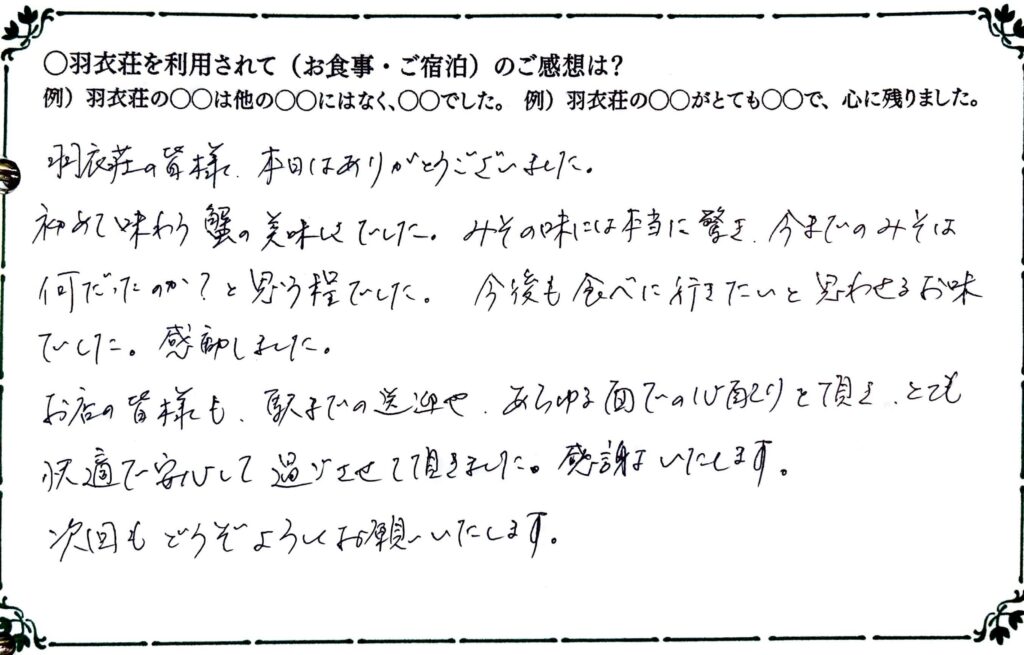 〇羽衣荘を利用されて（お食事・ご宿泊）のご感想は？
例）羽衣荘の〇〇は他の〇〇にはなく、〇〇でした。 例）羽衣荘の〇〇がとても〇〇で、心に残りました。
羽衣荘の皆様、本日はありがとうございました。
初めて味わう蟹の美味しさでした。みその味には本当に驚き、今までのみそは
何だったのか？と思う程でした。 今後も食べに行きたいと思わせるお味
でした。感動しました。
お店の皆様も、駅までの送迎や、あらゆる面での心配りを頂き、とても
快適で安心して過ごさせて頂きました。感謝いたします。
次回もどうぞよろしくお願いいたします。